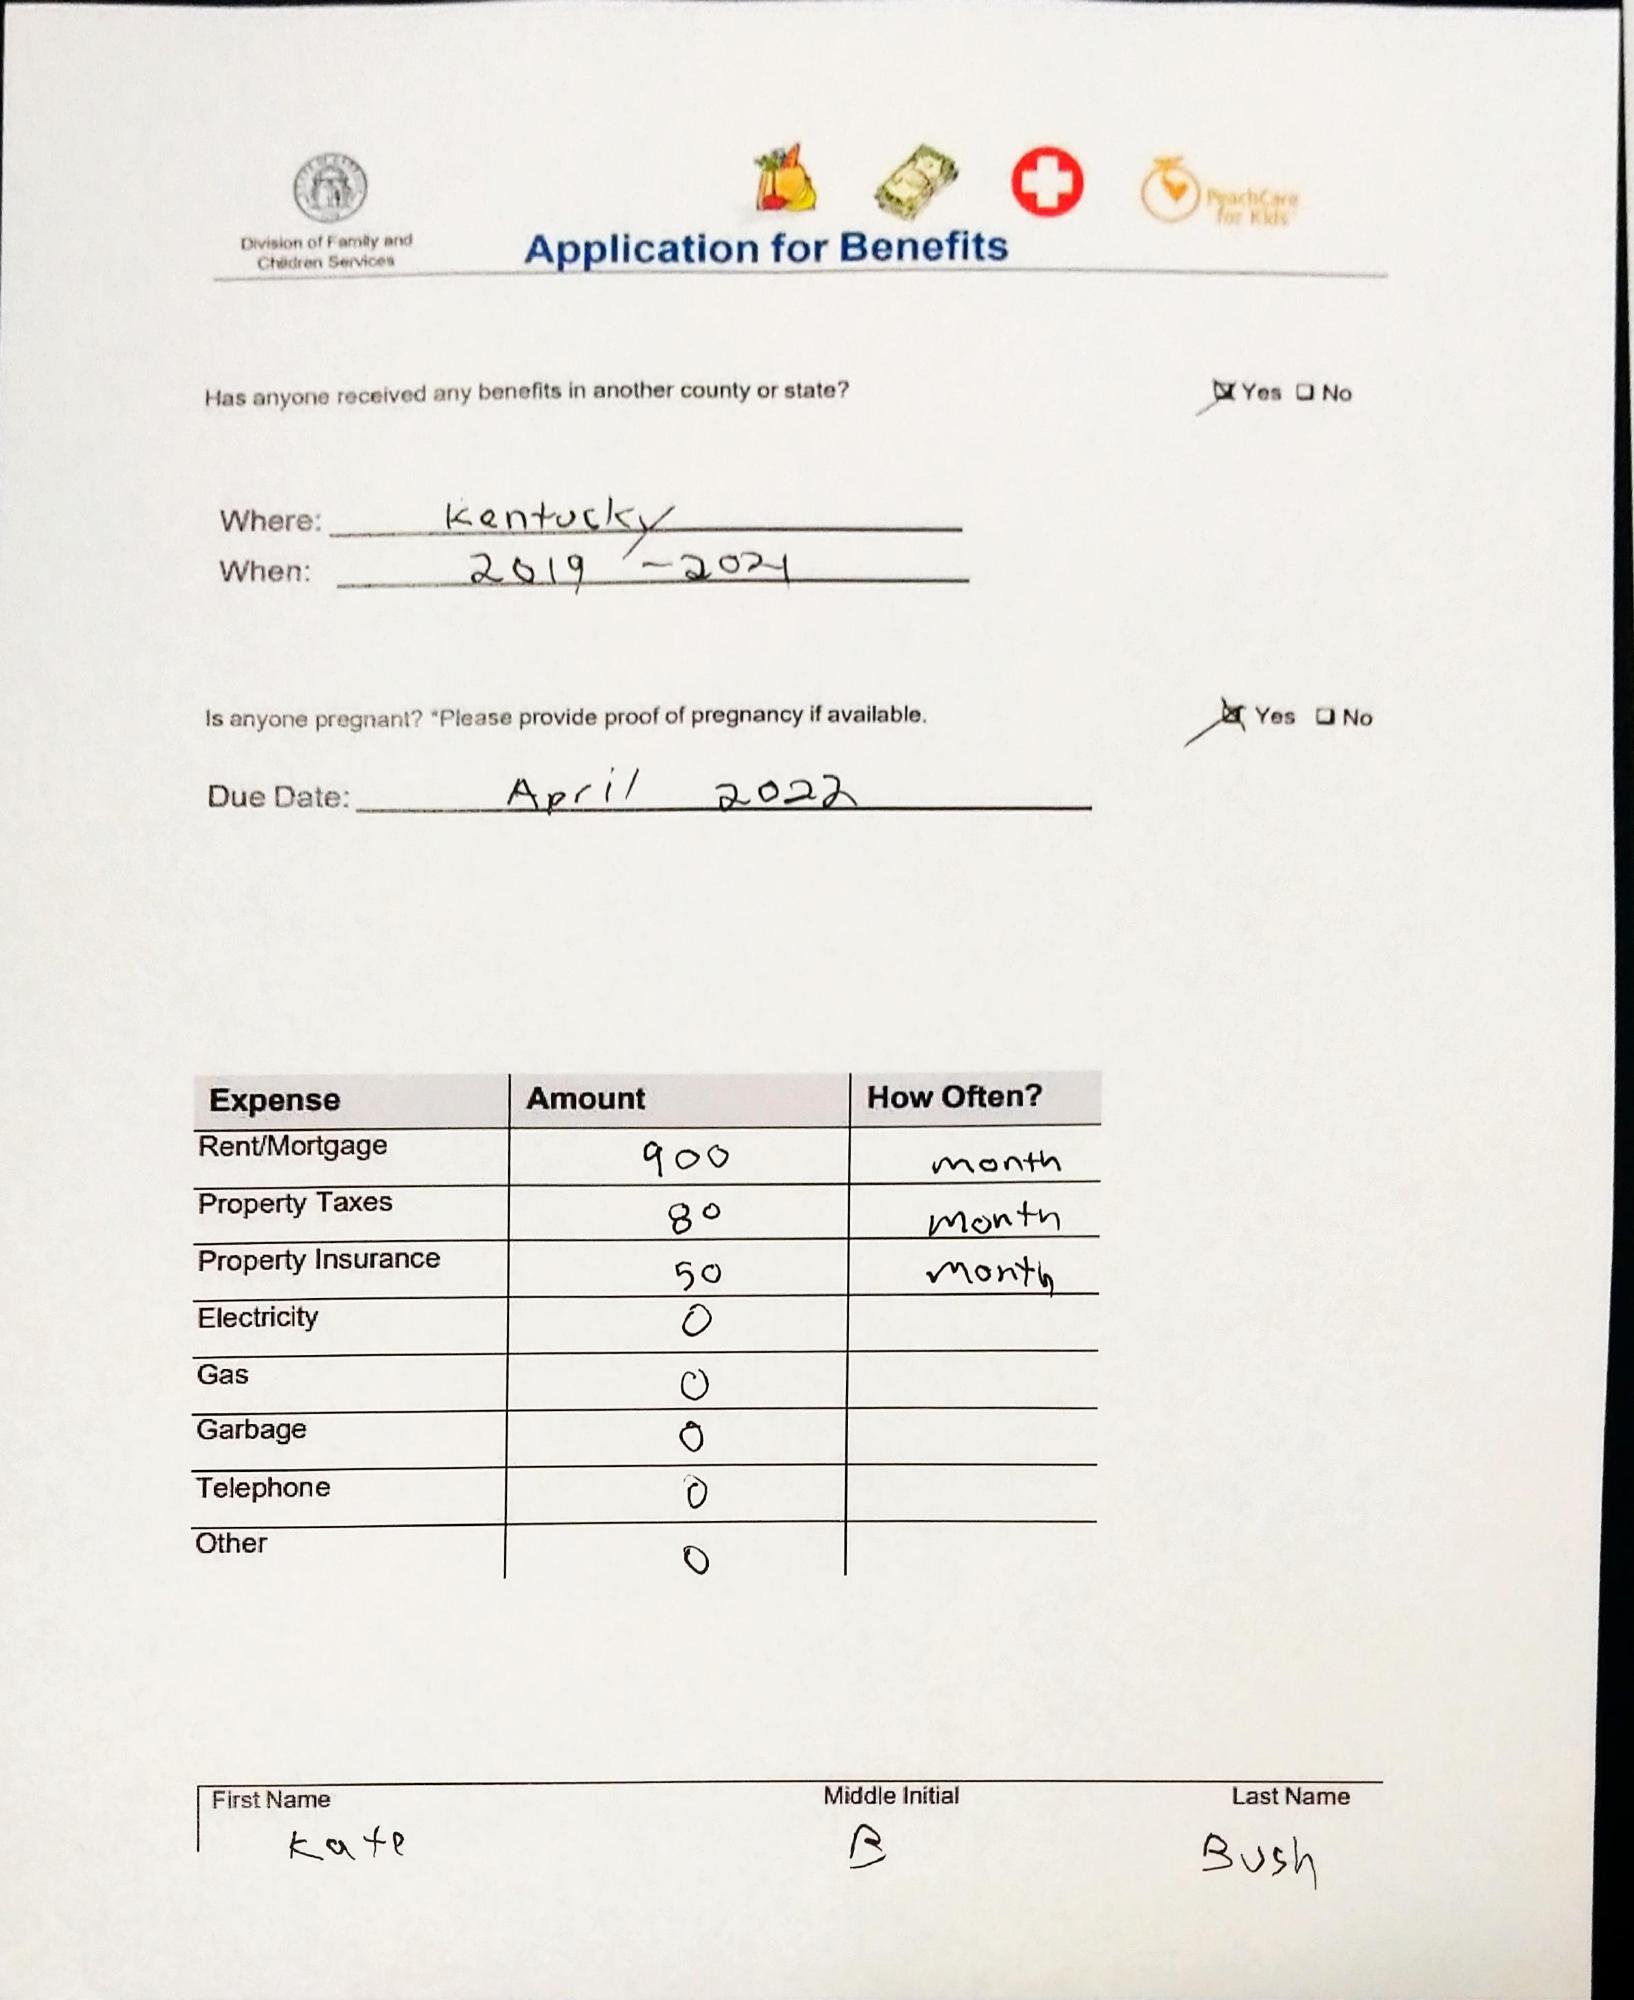 Division of Family and
Children Services
Application for Benefits
PeachCare
for Kids
Has anyone received any benefits in another county or state? Yes No
Where: Kentucky
When: 2019 - 2021
Is anyone pregnant? *Please provide proof of pregnancy if available. Yes No
Due Date: April 2022
Expense Amount How Often?
Rent/Mortgage 900 month
Property Taxes 80 month
Property Insurance 50 month
Electricity 0
Gas 0
Garbage 0
Telephone 0
Other 0
First Name Middle Initial Last Name
Kate B Bush